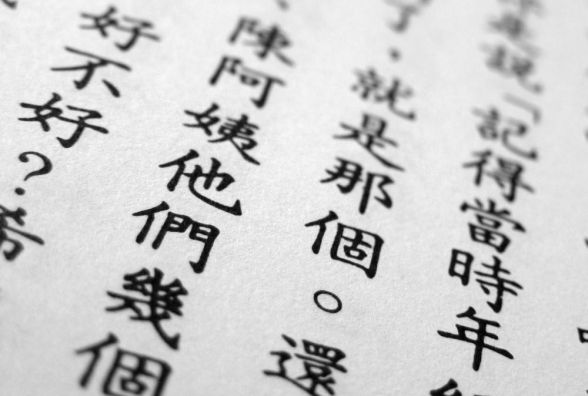 是說「記得當時年
了，就是那個。還
、陳阿姨他們幾個
好不好？希